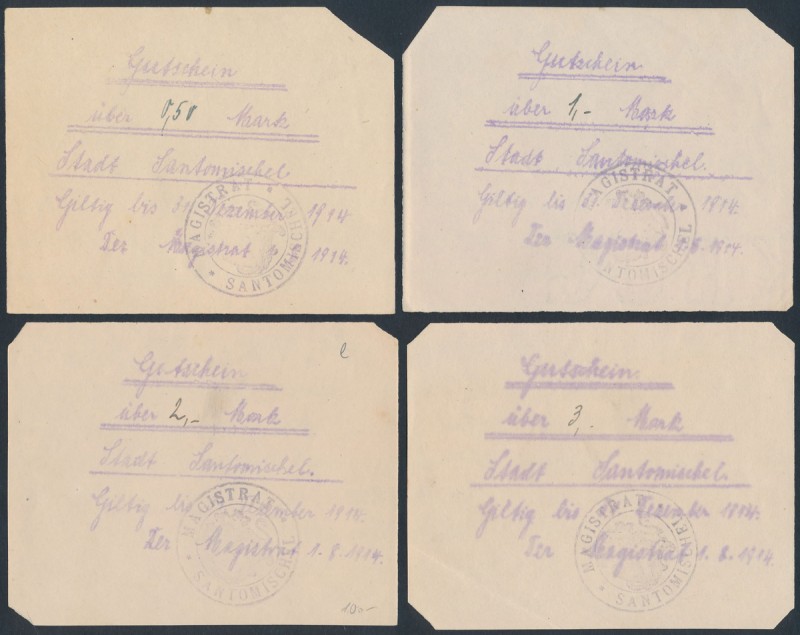 Gutschein
über 0,50 Mark
Stadt Santomischel
Giltig bis 31. Dezember 1914
Der Magistrat 1914.
MAGISTRAT * SANTOMISCHEL *
Gutschein
über 1,- Mark
Stadt Santomischel.
Giltig bis 31. Dezember 1914.
Der Magistrat 1.8.1914.
MAGISTRAT * SANTOMISCHEL
e
Gutschein
über 2,- Mark
Stadt Santomischel.
Giltig bis Dezember 1914.
Der Magistrat 1.8.1914.
MAGISTRAT * SANTOMISCHEL *
100-
Gutschein
über 3,- Mark
Stadt Santomischel.
Giltig bis Dezember 1914.
Der Magistrat 1.8.1914.
MAGISTRAT SANTOMISCHEL *